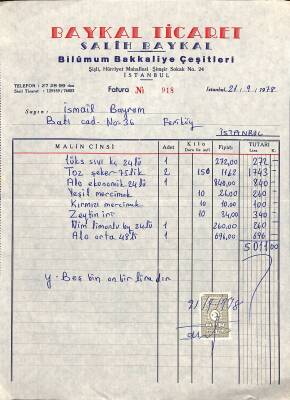 BAYKAL TİCARET
SALİH BAYKAL
Bilûmum Bakkaliye Çeşitleri
Şişli, Hürriyet Mahallesi Şimşir Sokak No. 24
İSTANBUL
TELEFON : 27 28 99
Fatura No 918
İstanbul, 21 / 9 / 1978
Sayın: İsmail Bayram
Batı cad. No: 36 Feriköy
İSTANBUL
MALIN CİNSİ Adet Kilo Fiyatı TUTARI
Lira K.
lüks sivi 24 lü 1 272,00 272
Toz şeker 75 lik 2 150 1162 1743
Alo ekonomik 24 lü 1 840,00 840
Yeşil mercimek 10 26,00 260
Kırmızı mercimek 10 10,00 100
Zeytin iri 10 34,00 340
Nim limontu 24 lü 1 260,00 260
Alo orta 48 li 1 696,00 696
5011 00
Y. Beş bin on bir liradır
21/9/978